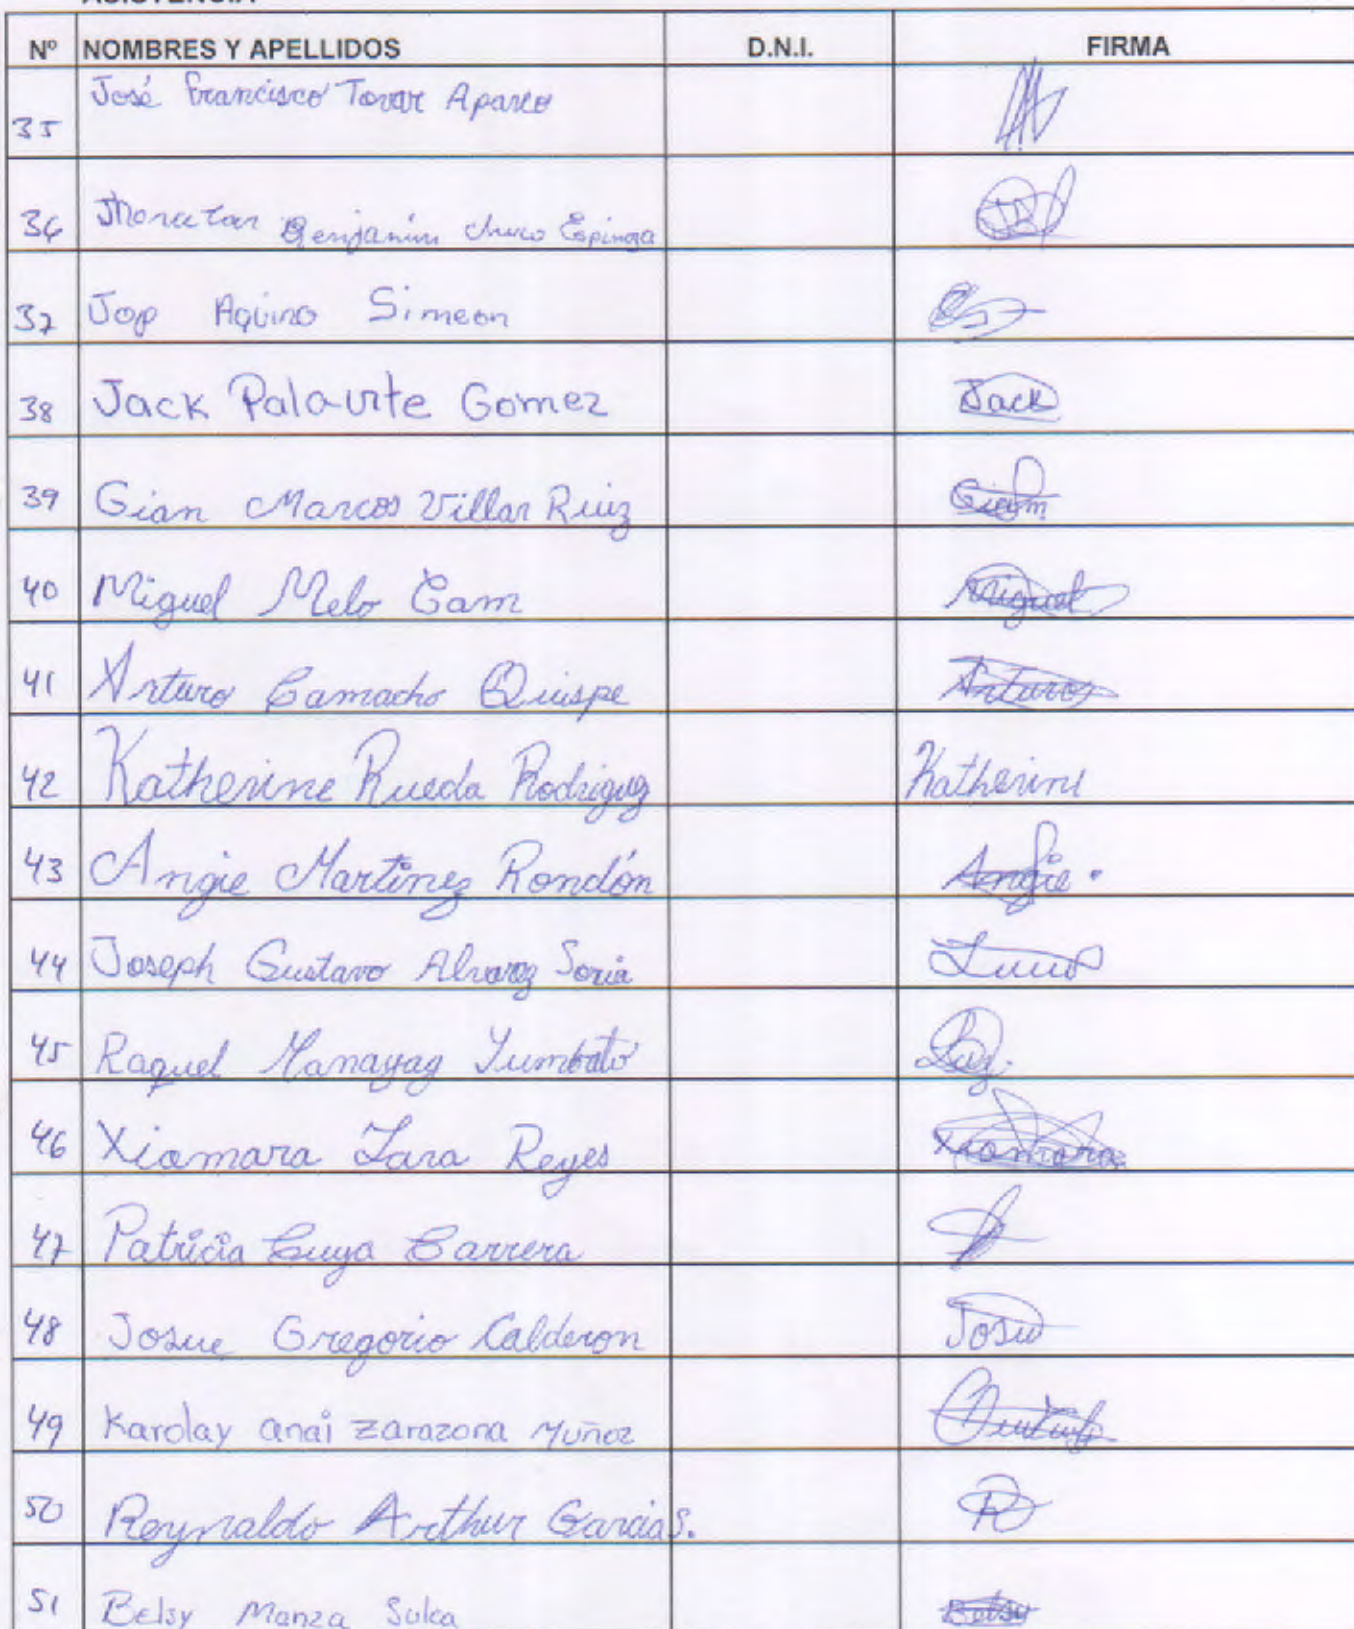 Nº NOMBRES Y APELLIDOS D.N.I. FIRMA
35 José Francisco Tovar Aparco
36 Jhonatan Benjanin Churo Espinoza
37 Jop Aquino Simeon
38 Jack Palo-unte Gomez Jack
39 Gian Marcos Villar Ruiz Giam
40 Miguel Melo Cam Miguel
41 Arturo Camacho Quispe Arturo
42 Katherine Rueda Rodriguez Katherine
43 Angie Martinez Rondón Angie
44 Joseph Gustavo Alvarez Soria
45 Raquel Manayay Yumbato
46 Xiomara Lara Reyes Xiomara
47 Patricia Cuya Barrera
48 Josue Gregorio Calderon Josue
49 Karolay anai zarazona Muñoz
50 Reynaldo Arthur Garcia S.
51 Belsy Manza Sulca Belsy